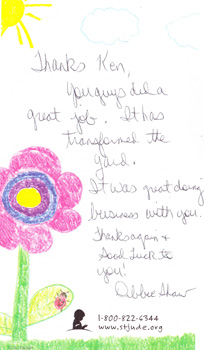 Thanks Ken,
You guys did a
great job. It has
transformed the
yard.
It was great doing
business with you.
Thanks again &
Good Luck to
you!
Debbie Shaw
1-800-822-6344
www.stjude.org